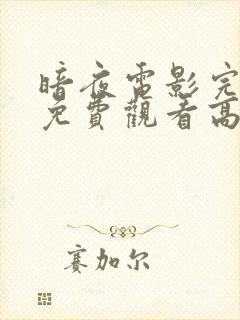 暗夜電影完
免費觀看高
赛加尔